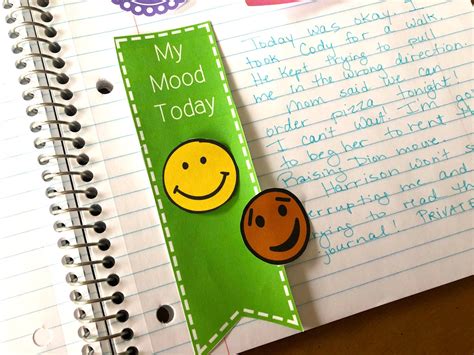 My
Mood
Today
Today was okay. I
took Cody for a walk.
He kept trying to pull
me in the wrong direction.
Mom said we can
order pizza tonight!
I can't wait! I'm go
to beg her to rent th
Raising Dion move.
Harrison won't s
errupting me and
ying to read my
journal! PRIVATE